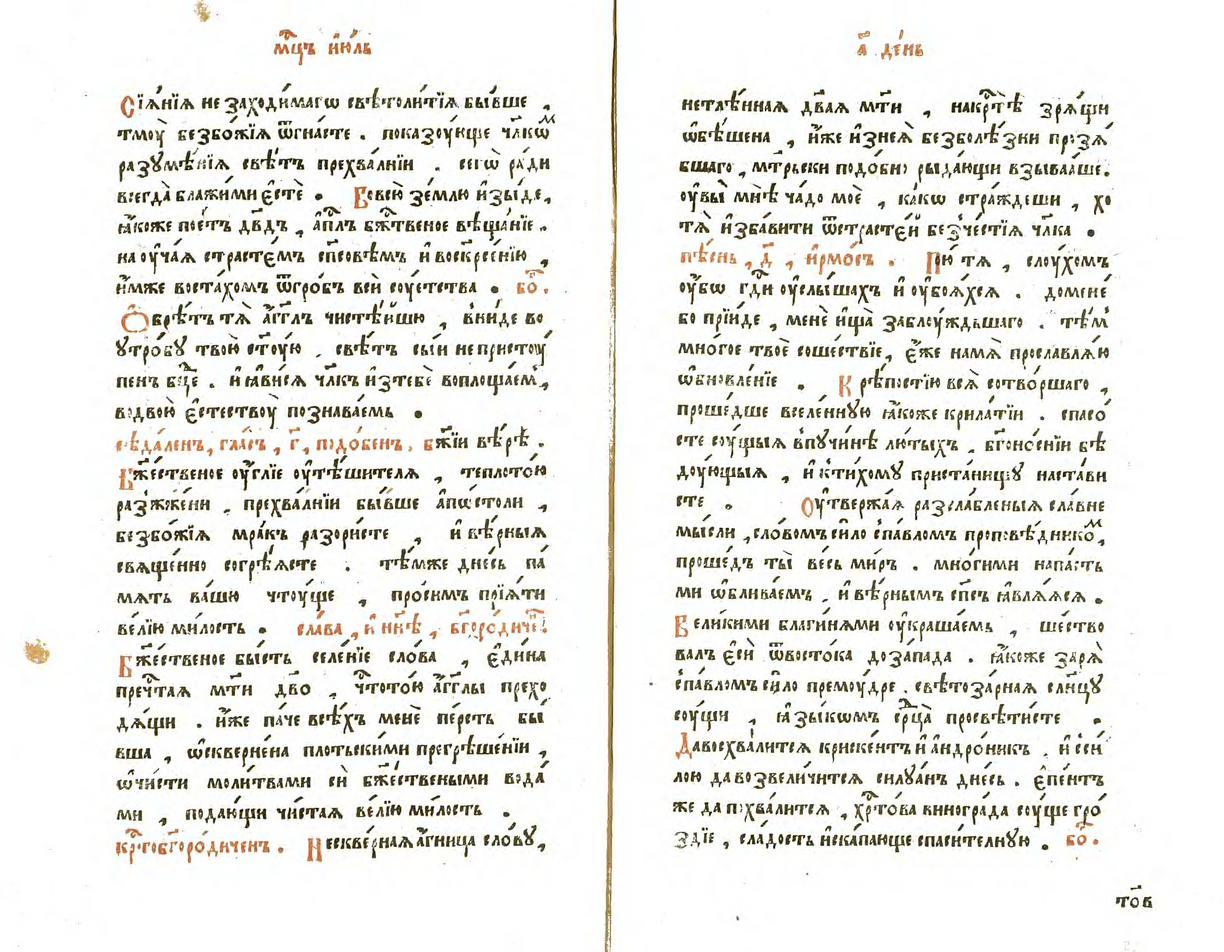 мⷭ҇цъ и҆ю́ль
Сїѧ́нїѧ не заходи́магѡ свѣтоли́тїѧ бы́вше ,
тмоу̀ безбо́жїѧ ѿгна́сте . показоу́юще чл҃кѡⷨ
разꙋмѣ́нїѧ свѣ́тъ прехва́лнїи . сегѡ̀ ра́ди
всегда̀ блажи́ми є҆стѐ . Вовсю̀ зе́млю и҆зы́де ,
ꙗ҆́коже пое́тъ дв҃дъ , а҆пⷭ҇лъ бж҃твеное вѣща́нїе .
наоуча́ѧ страсте́мъ сп҃совѣмъ и҆ воскресе́нїю ,
и҆́мже воста́хомъ ѿгро́бъ всѝ соу́етства . бо҃ .
Ѡ҆брѣ́тъ тѧ̀ а҆́гг҃лъ чистѣ́ишю , вни́де во
ᲂутро́бꙋ твою̀ ст҃оу́ю . свѣ́тъ сы́и непристоу́
пенъ бц҃е . и҆ ꙗ҆ви́сѧ чл҃къ и҆зтебѐ воплоща́ем ,
водвою̀ є҆стествоу̀ познава́емь .
сѣда́ленъ , гла́съ , г҃ , подо́бенъ , бж҃іи вѣ́рѣ .
Бж҃ественое оу҆́глїе оу҆тѣ́шителѧ , теплото́ю
разжже́ни , прехва́лнїи бы́вше а҆пⷭ҇толи ,
безбо́жїѧ мра́къ разори́сте , и҆ вѣ́рныѧ
свѧще́нно согрѣ́ѧсте . тѣ́мже дне́сь па́
мѧть ва́шю чтоу́ще , про́симъ прїѧ́ти
ве́лїю ми́лость . сла́ва , и҆ нн҃ѣ , бг҃оро́диченъ .
Бж҃ественое бы́сть селе́нїе сло́ва , є҆ди́на
пречⷭ҇тая мт҃и дв҃о , чⷭ҇тото́ю а҆́гг҃лы прехо
дѧ́щи . и҆́же па́че всѣ́хъ менѐ пе́рсть бы́
вша , ѡ҆скверне́на пло́тьскими прегрѣше́нїи ,
ѡ҆чи́сти моли́твами сѝ бж҃ествеными вода́
ми , подаю́щи чи́стаѧ ве́лїю ми́лость .
крⷭ҇тобг҃оро́диченъ . Нескве́рнаѧ а҆́гница сло́вꙋ ,
а҃ де́нь
нетлѣ́нная дв҃ая мт҃и , накрⷭ҇тѣ̀ зрѧ́щи
ѡ҆бѣ́шена , и҆́же и҆знеѧ̀ безболѣ́зни прозѧ́
бшаго , мт҃рьски подо́бно рыда́ющи взыва́аше .
оу҆вы̀ мнѣ̀ ча́до моѐ , ка́кѡ стра́ждеши , хо
тѧ̀ и҆зба́вити ѿстрасте́й безче́стїѧ чл҃ка .
пѣ́снь , д҃ , і҆рмо́съ . Пою́ тѧ , слоу́хомъ
оу҆́бѡ гдⷭ҇и оу҆слы́шахъ и҆ оу҆боѧ́хсѧ . доменѐ
бо прїи́де , менѐ и҆ща̀ заблоу́ждьшаго . тѣ́м
мно́гое твоѐ сошествїе , є҆́же намѧ̀ прославлѧ́ю
ѡ҆бновле́нїе . Крѣ́постїю всѧ̀ сотво́ршаго ,
проше́дше вселе́ннꙋю ꙗ҆́коже крила́тїи . спасо́
сте соу́щыѧ впучи́нѣ лю́тыхъ . бг҃оно́снїи бѣ
доу́ющыѧ , и҆ кти́хомꙋ приста́нищꙋ наста́ви
сте . Оу҆тверж́аѧ разсла́бленыѧ сла́вне
мы́сли , сло́вомъ сило спа́вломъ проповѣ́дникоⷨ ,
проше́дъ ты̀ весь ми́ръ . мно́гими напа́сть
ми ѡ҆блива́емъ , и҆ вѣ́рнымъ сп҃съ ꙗ҆влѧ́ѧсѧ .
Вели́кими благи́нѧми оу҆краша́емь , ше́ство
валъ є҆сѝ ѿвосто́ка доза́пада . ꙗ҆́коже зарѧ̀
спа́вломъ сило премоу́дре . свѣтоза́рная сл҃нцꙋ
соу́щи , ꙗ҆зы́кѡмъ срⷣца просвѣти́сте .
Давосхва́литсѧ криске́нтъ и҆ а҆ндро́никъ . и҆ сси
лою да возвели́читсѧ силꙋа́нъ дне́сь . є҆пе́нтъ
же да похва́литсѧ , хрⷭ҇то́ва виногра́да соу́ще гро́
здїе , сла́дость и҆ска́пающе спаси́телнꙋю . бо҃ .
тоⷡ